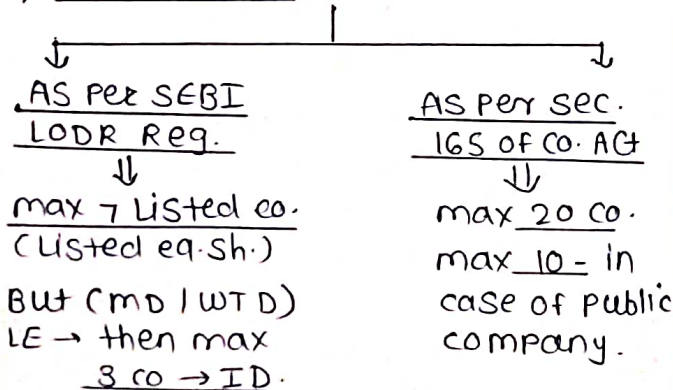 AS Per SEBI
LODR Reg.
⇓
max 7 Listed co.
(Listed eq.sh.)
But (MD / WTD)
LE → then max
3 co → ID.
AS per sec.
165 of co. Act
⇓
max 20 co.
max 10 - in
case of public
company.